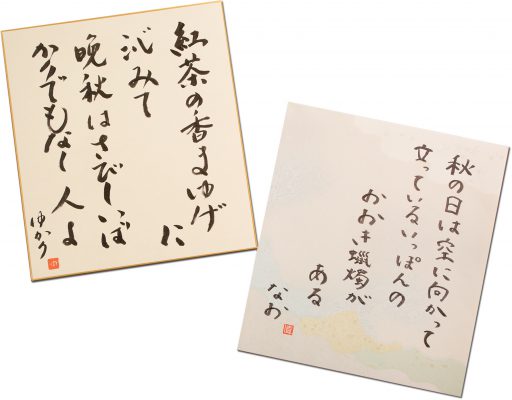 紅茶の香まゆげに
沁みて
晩秋はさびしいば
かりでもなし人よ
ゆかり
秋の日は空に向かって
立っているいっぽんの
おおき蠟燭が
ある
なお